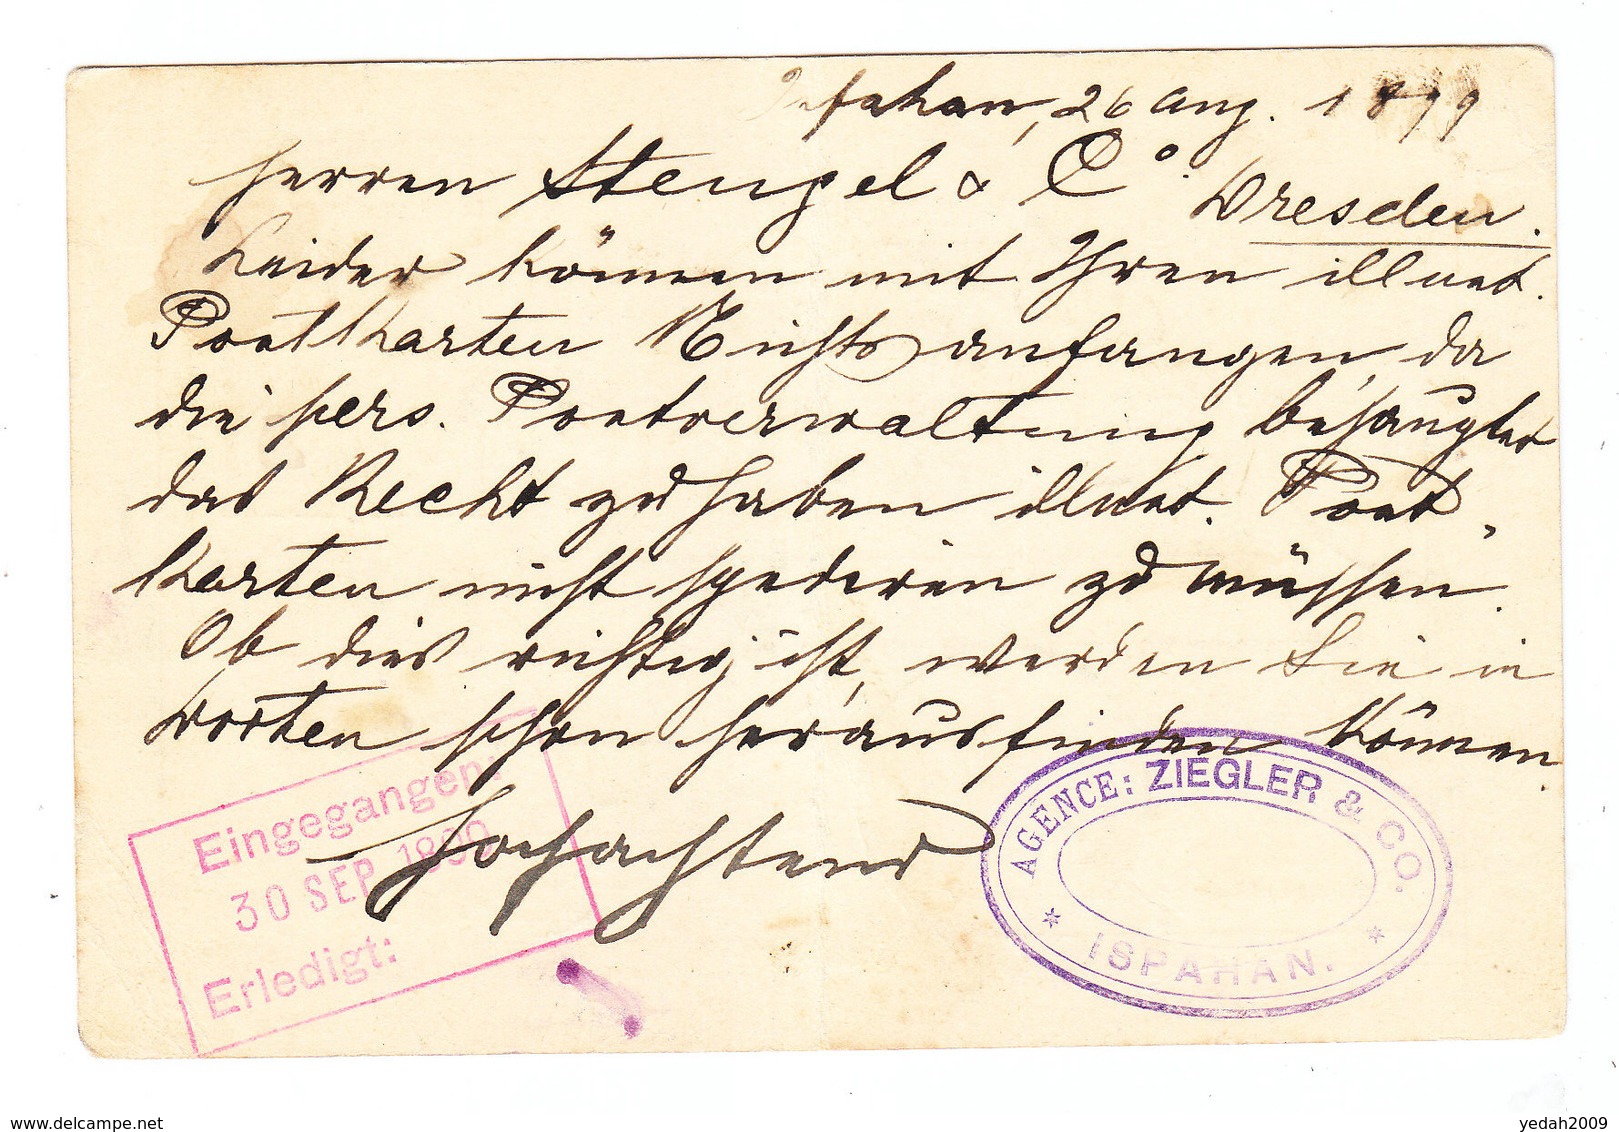 Isfahan, 26 Aug. 1899
Herren Stengel & Co. Dresden.
Leider können mit Ihren illust.
Postkarten Nichts anfangen, da
die pers. Postverwaltung behauptet
das Recht zu haben illust. Post-
karten nicht spedieren zu müssen.
Ob dies richtig ist, werden Sie in
dorten schon herausfinden können.
Hochachtend
Eingegangen:
30 SEP. 1899
Erledigt:
AGENCE: ZIEGLER & CO.
* ISPAHAN. *
yedah2009
www.delcampe.net